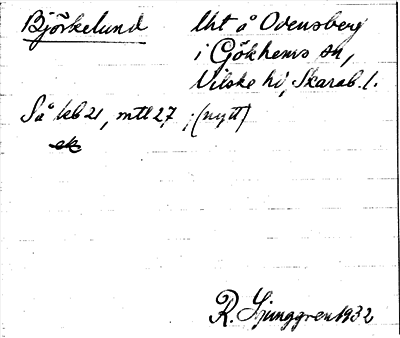 Björkelund lht å Odensberg
i Gökhems sn,
Vilske hd, Skarab. l.
Så kb 21, mtl 27, (nytt)
R. Ljunggren 1932